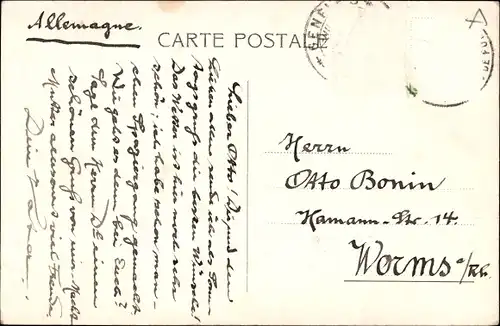 Allemagne.
CARTE POSTALE
GENÈ
Lieber Otto! Dir und den
lieben allen sende ich als Sonn-
tagsgruß die besten Wünsche!
Das Wetter ist hier noch sehr
schön; ich habe schon man-
chen Spaziergang gemacht.
Wie geht es denn bei Euch?
Sage dem Herrn Dr. einen
schönen Gruß von mir. Macht
Mutter alles uns viel Freude.
Dein
Herrn
Otto Bonin
Hamann-Str. 14.
Worms a/Rh.